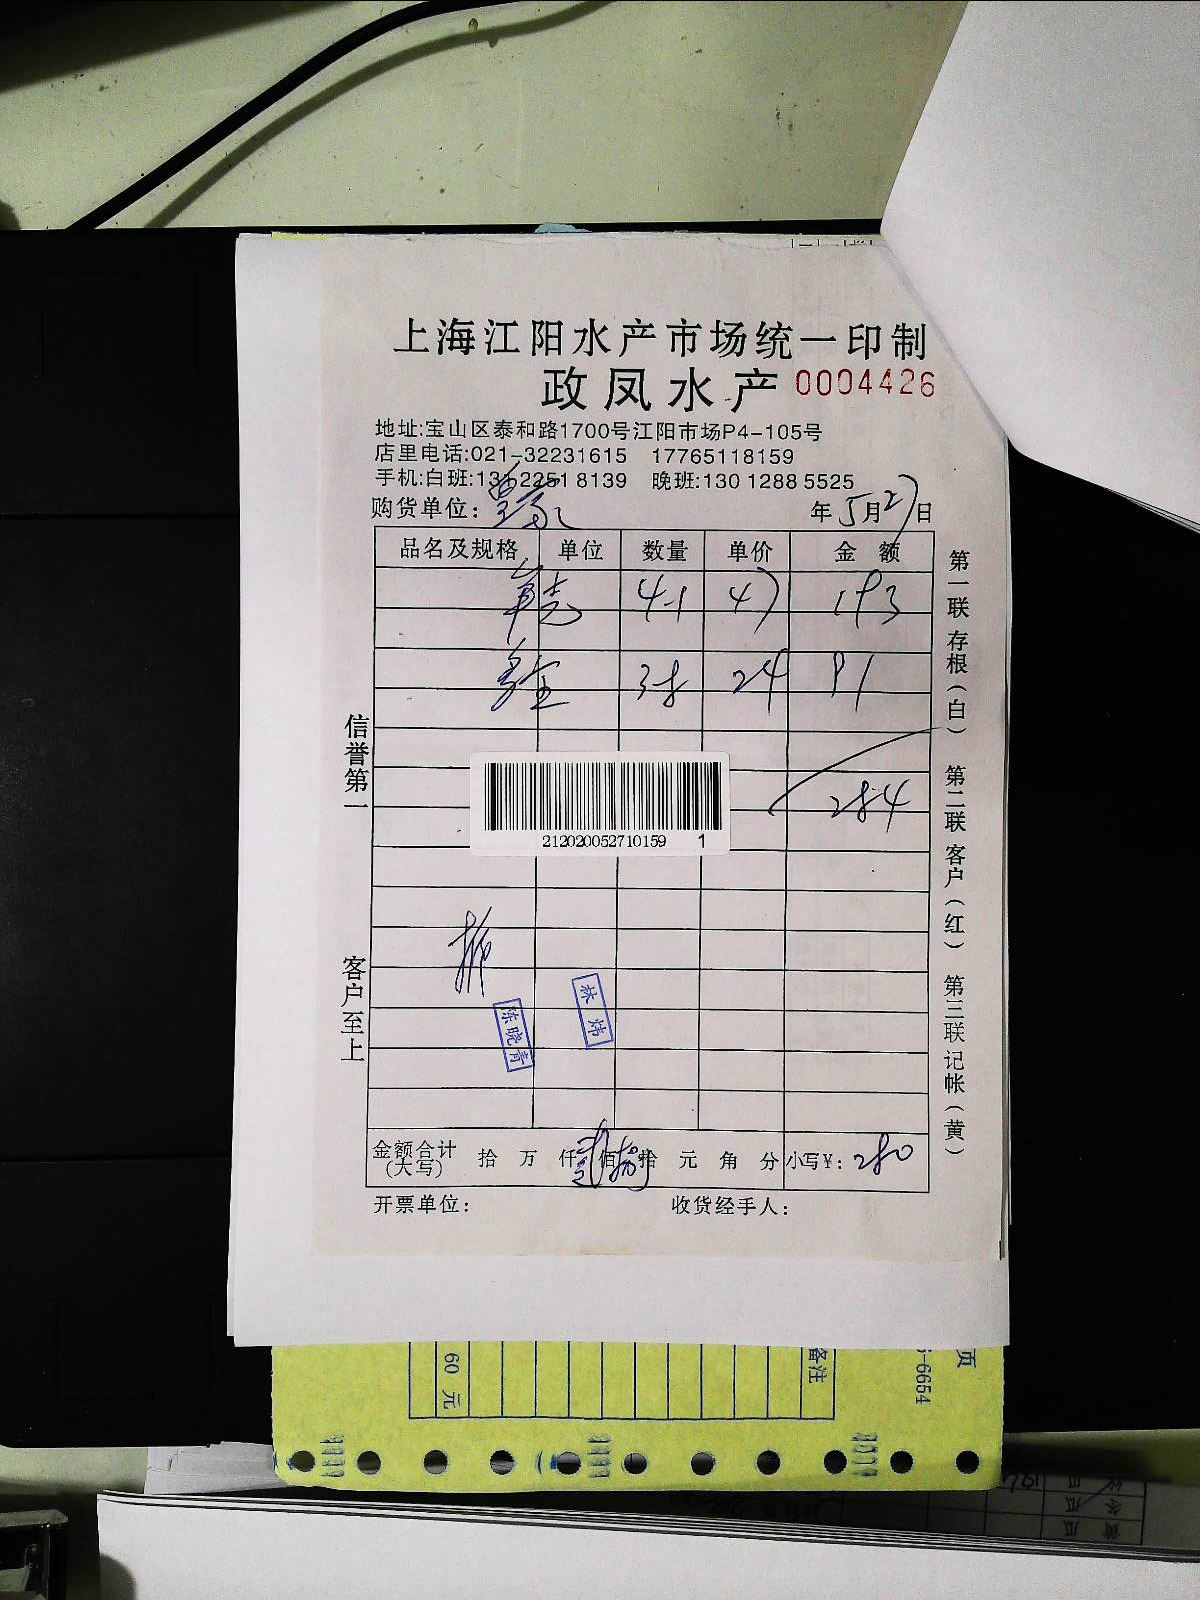 上海江阳水产市场统一印制
政凤水产 0004426
地址:宝山区泰和路1700号江阳市场P4-105号
店里电话:021-32231615 17765118159
手机:白班:136 2251 8139 晚班:130 1288 5525
购货单位: 年5月27日
品名及规格 单位 数量 单价 金额
4.1 47 193
3.8 24 91
284
212020052710159 1
林炜
陈晓青
金额合计(大写) 拾 万 仟 佰 拾 元 角 分 小写¥: 280
开票单位: 收货经手人:
信誉第一 客户至上
第一联存根(白) 第二联客户(红) 第三联记帐(黄)
60 元
备注
-6654
页